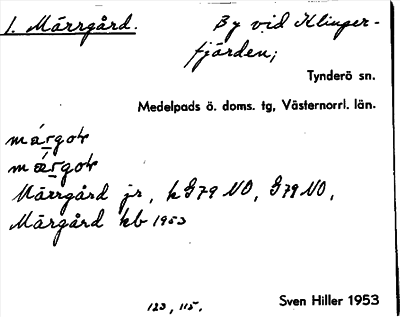 1. Märrgård. By vid Klinger-
fjärden;
Tynderö sn.
Medelpads ö. doms. tg, Västernorrl. län.
márgot
mærgot
Märrgård jr, k G79 NO, G79 NO,
Märgård kb 1953
123, 115.
Sven Hiller 1953